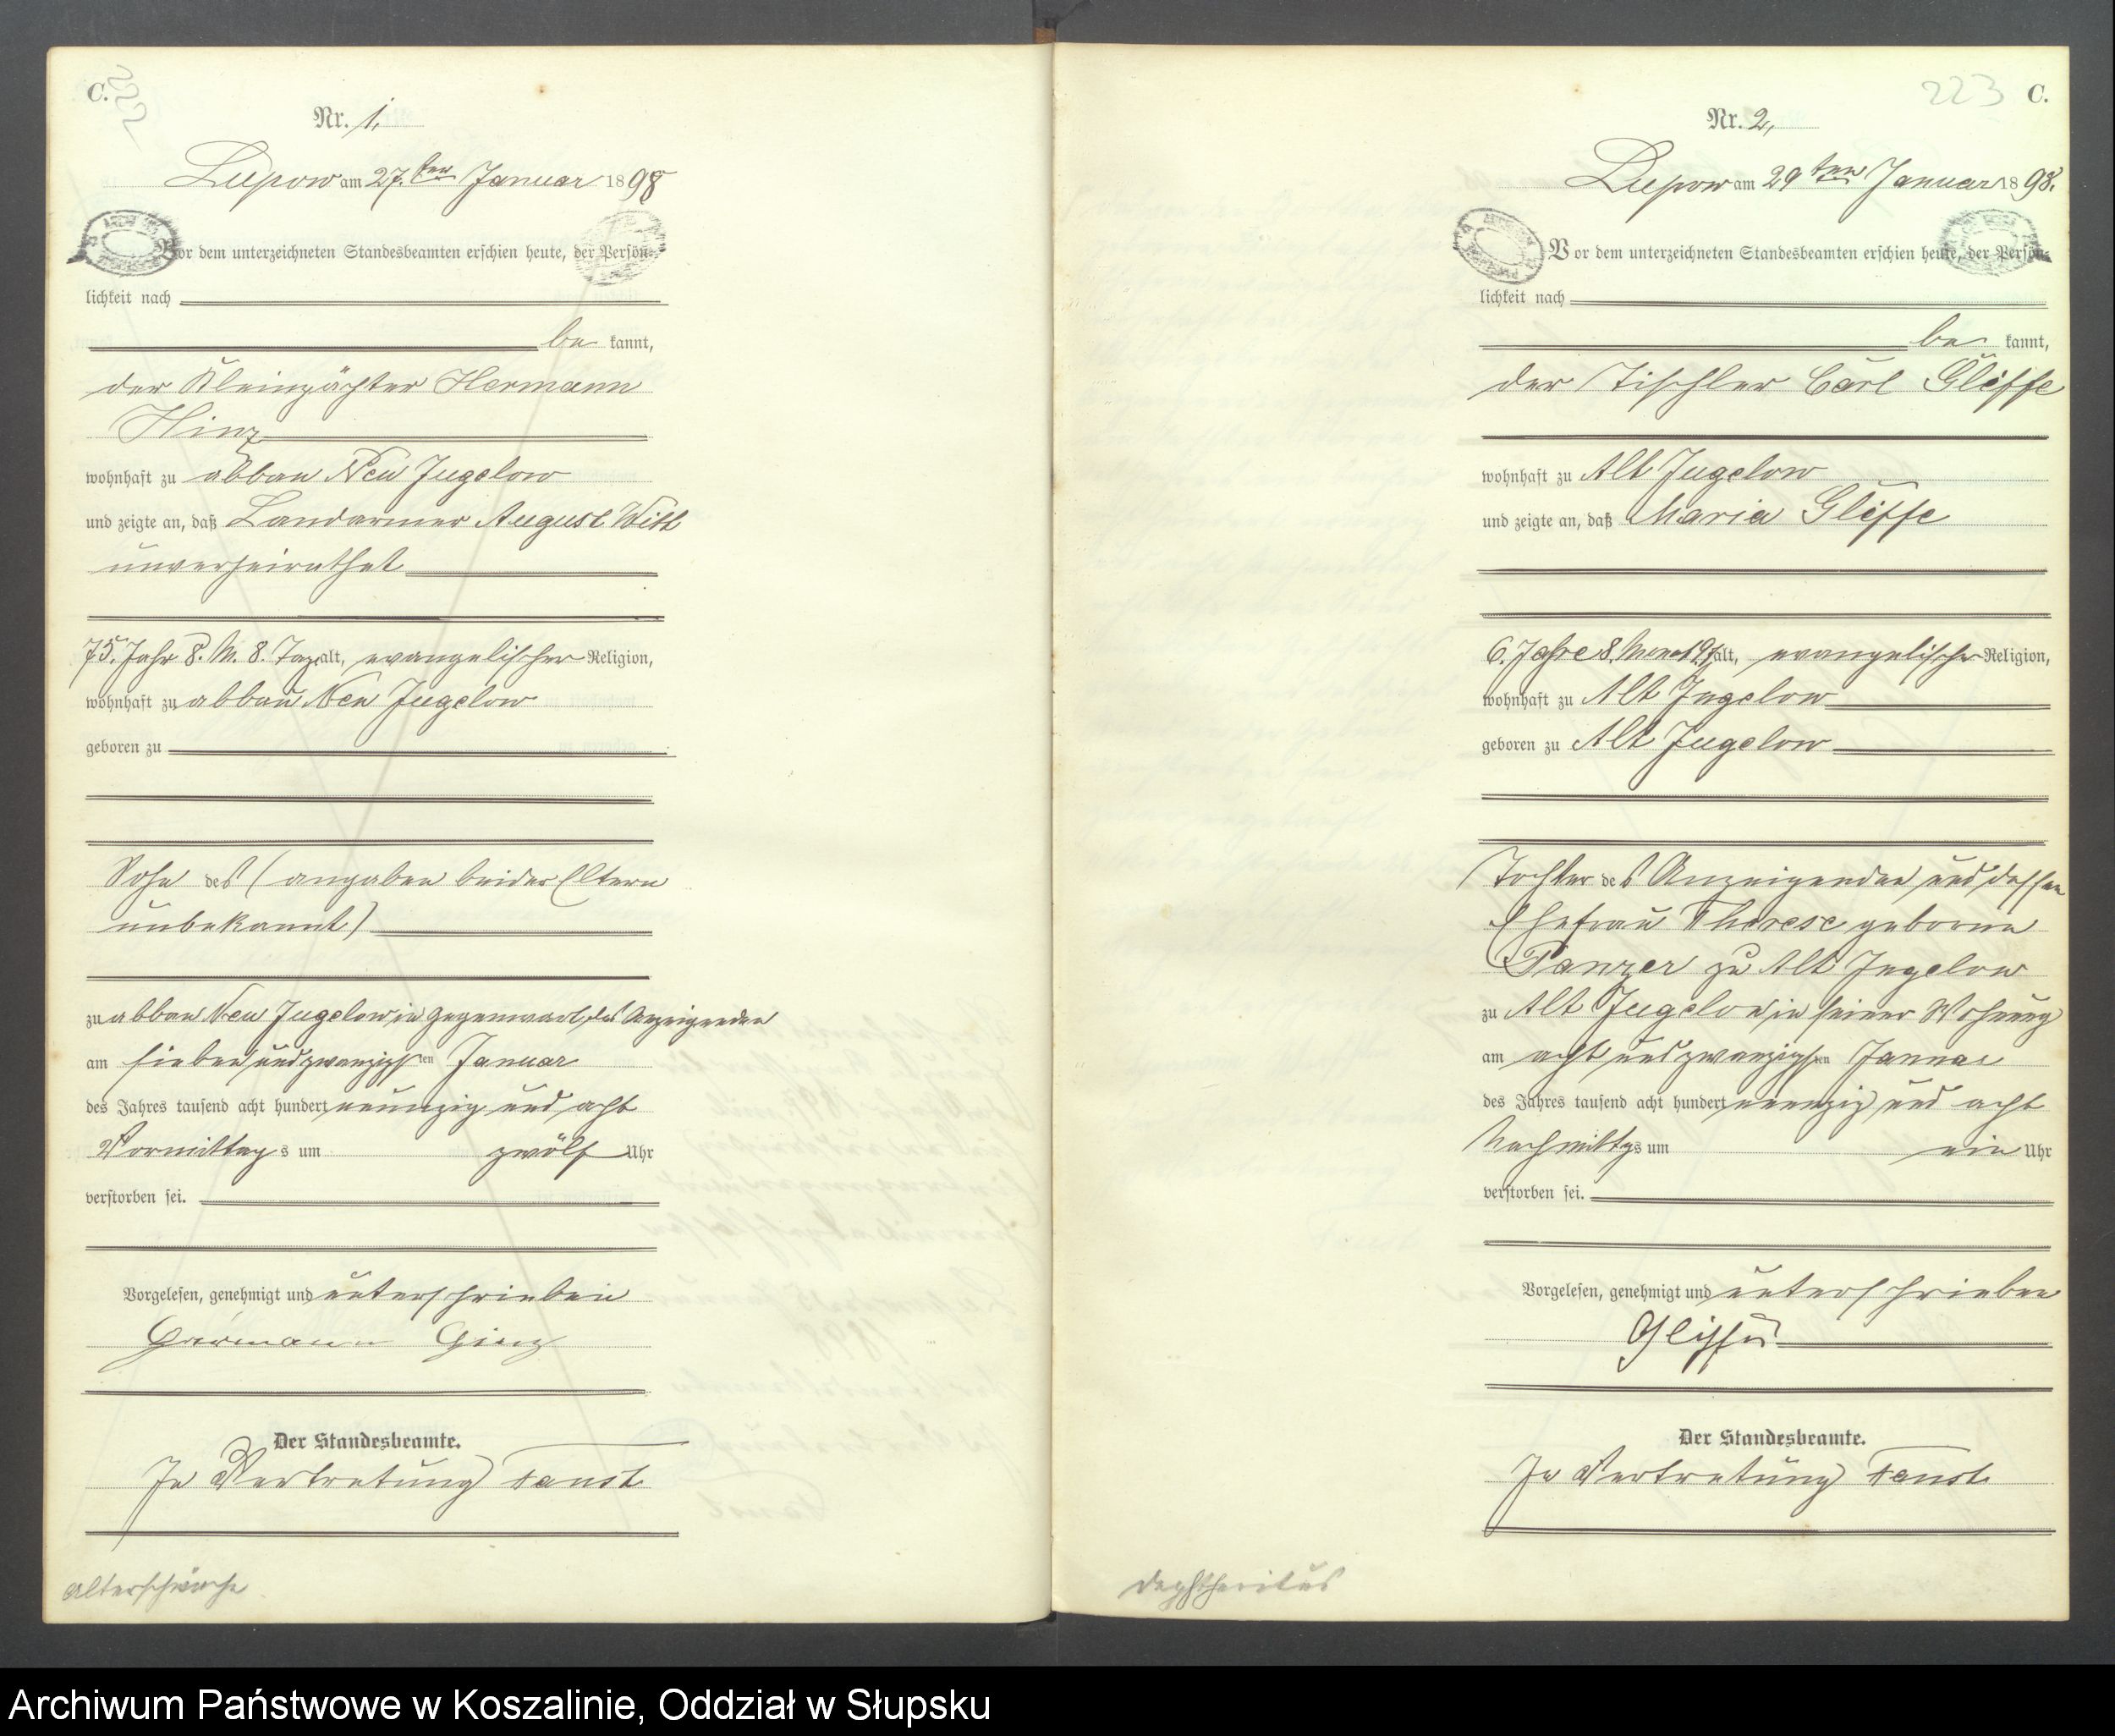 C.
222
Nr. 1.
Lupow am 27.ten Januar 1898
Vor dem unterzeichneten Standesbeamten erschien heute, der Persön-
lichkeit nach
be kannt,
der Kleinpächter Hermann
Hinz
wohnhaft zu abbau Neu Jugelow
und zeigte an, daß Landarmer August Witt
unverheirathet
75. Jahr 8. M. 8. Tag alt, evangelischer Religion,
wohnhaft zu abbau Neu Jugelow
geboren zu
Sohn des (angaben beider Eltern
unbekannt)
zu abbau Neu Jugelow in Gegenwart des Anzeigenden
am sieben und zwanzigsten Januar
des Jahres tausend acht hundert neunzig und acht
Vormittags um zwölf Uhr
verstorben sei.
Vorgelesen, genehmigt und unterschrieben
Hermann Hinz
Der Standesbeamte.
In Vertretung Faust
Alterschwäche
223 C.
Nr. 2,
Lupow am 29ten Januar 1898.
Vor dem unterzeichneten Standesbeamten erschien heute, der Persön-
lichkeit nach
be kannt,
der Tischler Carl Gliffe
wohnhaft zu Alt Jugelow
und zeigte an, daß Maria Gliffe
6. Jahre 8. Monat 9 T alt, evangelischer Religion,
wohnhaft zu Alt Jugelow
geboren zu Alt Jugelow
Tochter des Anzeigenden und dessen
Ehefrau Therese geborne
Panzer zu Alt Jugelow
zu Alt Jugelow in seiner Wohnung
am acht und zwanzigsten Januar
des Jahres tausend acht hundert neunzig und acht
Nachmittgs um ein Uhr
verstorben sei.
Vorgelesen, genehmigt und unterschrieben
Der Standesbeamte.
In Vertretung Faust
Dephtheritus
Archiwum Państwowe w Koszalinie, Oddział w Słupsku